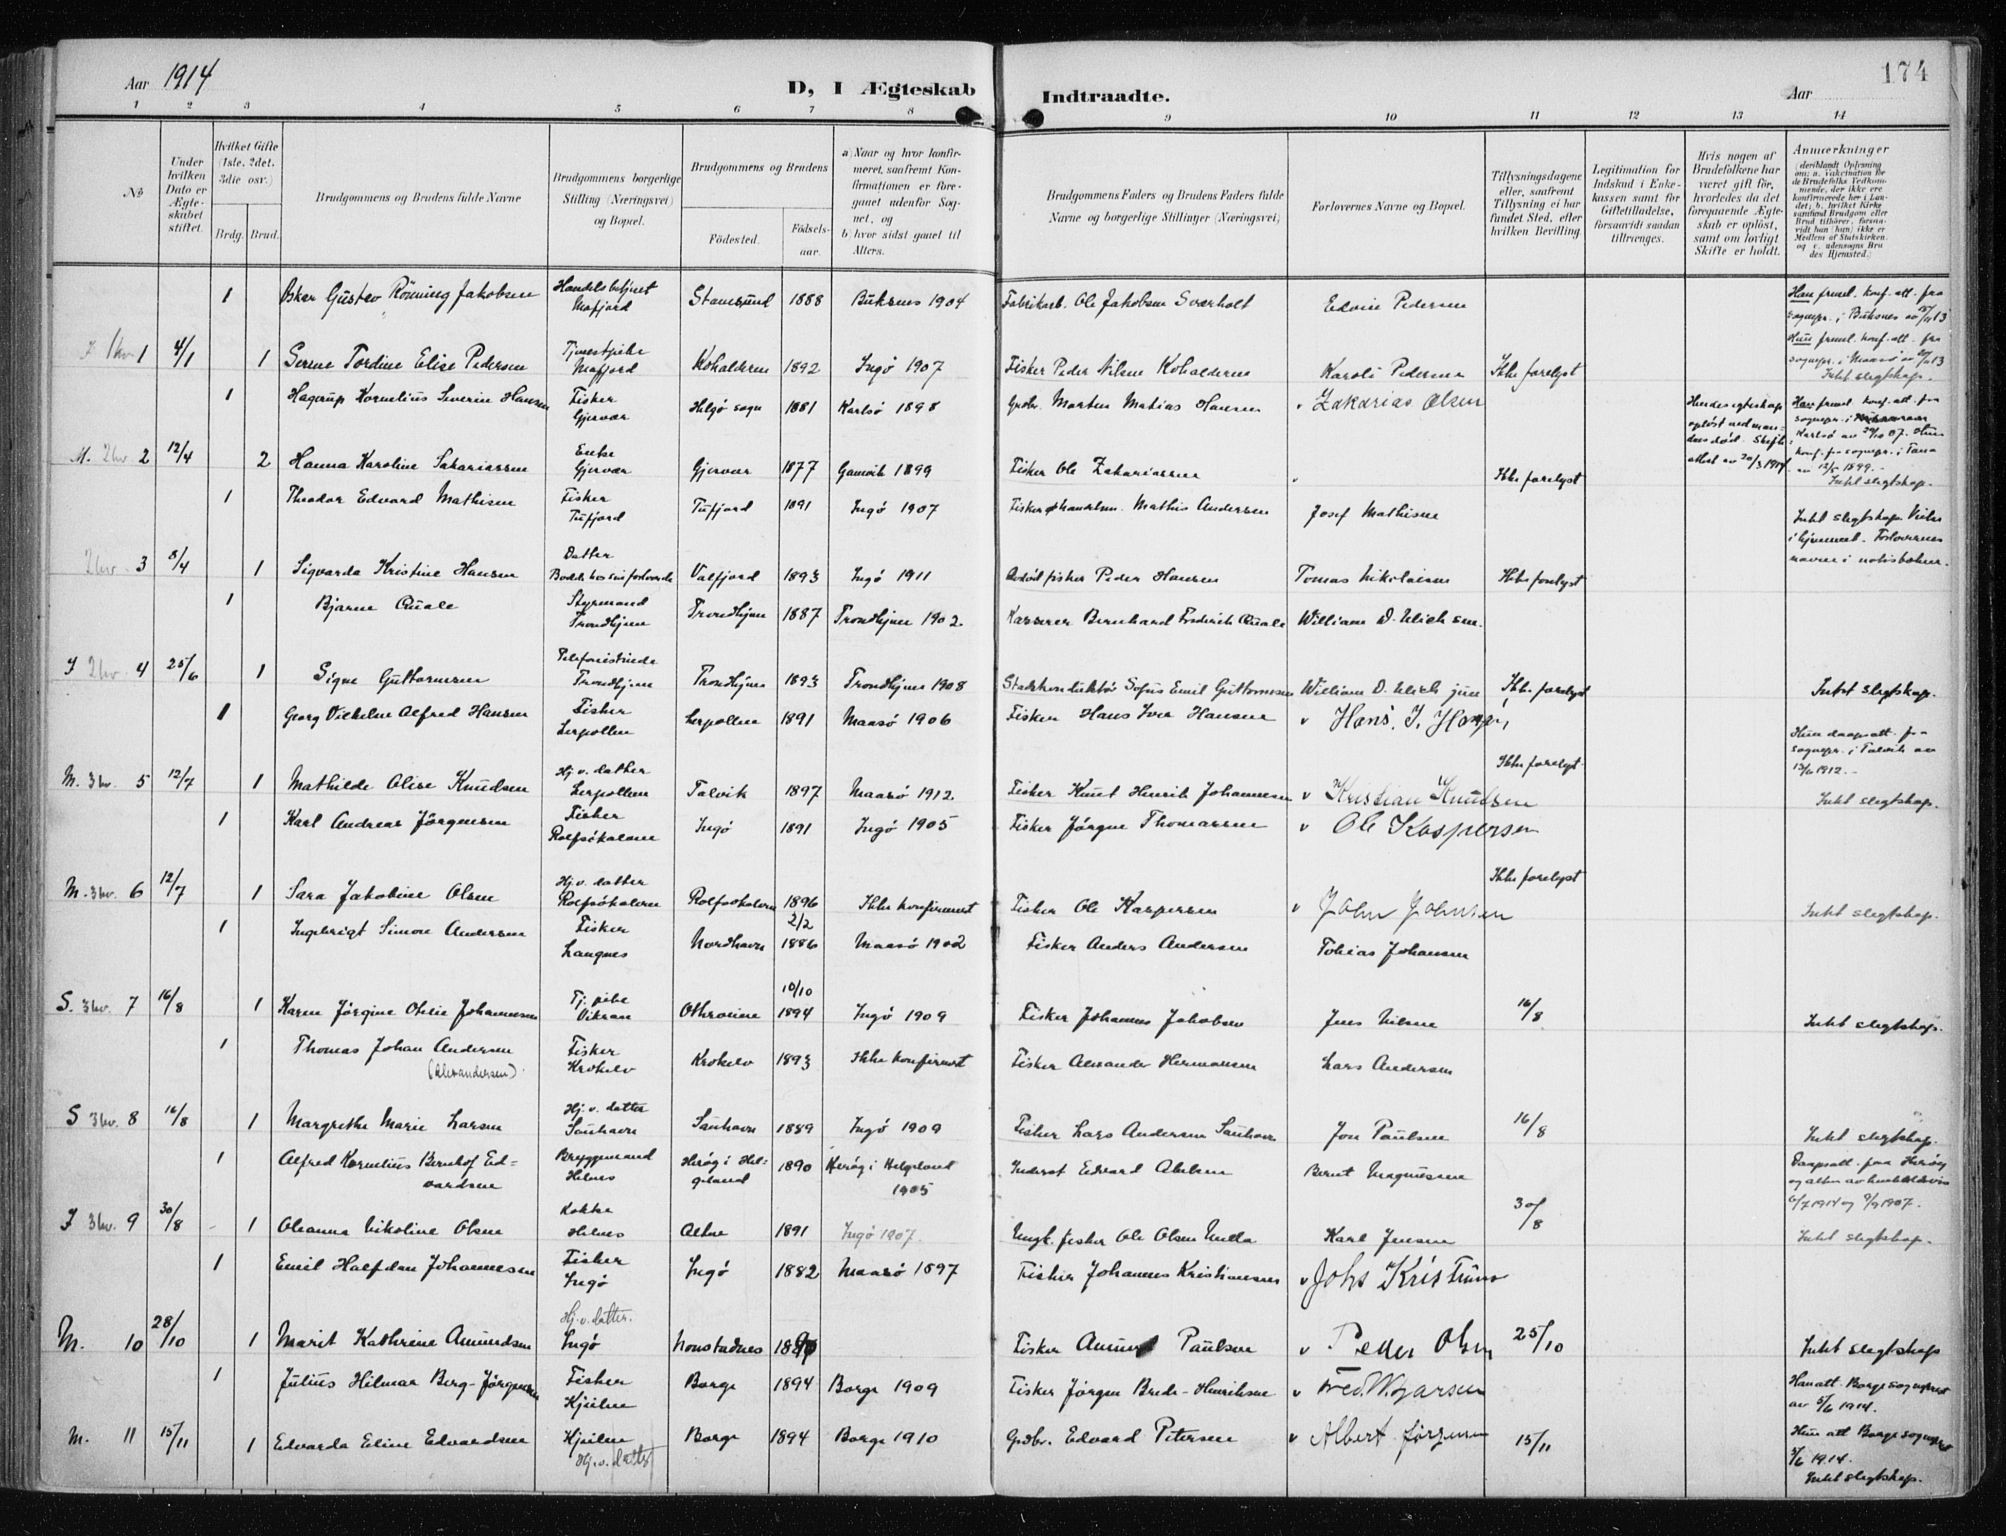 Aar 1914
D, I Ægteskab Indtraadte.
174
Aar
1 2 3 4 5 6 7 8 9 10 11 12 13 14
No
Under hvilken Dato er Ægteskabet stiftet.
Hvilket Gifte (1ste, 2det, 3die osv.)
Brdg. Brud.
Brudgommens og Brudens fulde Navne
Brudgommens borgerlige Stilling (Næringsvei) og Bopæl.
Brudgommens og Brudens
Födested. Födselsaar.
a) Naar og hvor konfirmeret, saafremt Konfirmationen er foregaaet udenfor Sognet, og
b) hvor sidst gaaet til Alters.
Brudgommens Faders og Brudens Faders fulde Navne og borgerlige Stillinger (Næringsvei)
Forlovernes Navne og Bopæl.
Tillysningsdagene eller, saafremt Tillysning ei har fundet Sted, efter hvilken Bevilling
Legitimation for Indskud i Enkekassen samt for Giftetilladelse, forsaavidt saadan tiltrænges.
Hvis nogen af Brudefolkene har været gift för, hvorledes da det foregaaende Ægteskab er oplöst, samt om lovligt Skifte er holdt.
Anmærkninger
(deriblandt Oplysning om: a. vaksination for de Brudefolks Vedkommende, der ikke ere konfirmerede her i Landet; b. hvilket Kirkesamfund Brudgom eller Brud tilhörer, forsaavidt han (hun) ikke er Medlem af Statskirken, og c. udensogns Brudes Hjemsted.)
1 Oskar Gustav Rönning Jakobsen Handelsbetjent Mafjord Stamsund 1888 Buksnes 1904 Fabrikarb. Ole Jakobsen Sværholt Edvin Pedersen Han freml. konf. att. fra sognepr. i Buksnes av
1 4/1 1 Serine Tordine Elise Pedersen Tjenestpike Mafjord Kohalderen 1892 Ingö 1907 Fisker Peder Nilsen Kohalderen Karoli Pedersen Ikke forelyst Hun freml. konf. att. fra sognepr. i Maasö av Intet slegtskap.
1 Hagerup Kornelius Severin Hansen Fisker Gjesvær Helgö sogn 1881 Karlsö 1898 Grdbr. Morten Matias Hansen Zakarias Olsen Hendes egteskap oplöst ved mandens död. Skifteattest av 20/3 1914 Han freml. konf. att. fra sognepr. i Karlsö av 29/10 07. Hun
M. 2kv 2 12/4 2 Hanna Karoline Sakariassen Enke Gjesvær Gjesvær 1877 Gamvik 1899 Fisker Ole Zakariassen Ikke forelyst konf. fra sognepr. i Tana av 12/5 1899. - Intet slegtskap.
1 Theodor Edvard Mathisen Fisker Tufjord Tufjord 1891 Ingö 1907 Fisker & handelsm. Mathis Andersen Josef Mathisen Intet slegtskap. Viet i hjemmet. Forlovernes navne i notisboken.
2kv. 3 8/4 1 Sigvarda Kristine Hansen Datter Valfjord 1893 Ingö 1911 fisker Peder Hansen Tomas Nikolaisen Ikke forelyst
1 Bjarne Quale Styrmand Trondhjem Trondhjem 1887 Trondhjem 1902 Kasserer Bernhard Frederik Quale William D. Ulichsen.
I 2kv. 4 25/6 1 Signe Guttormsen Telefonistinde Trondhjem Trondhjem 1893 Trondhjem 1908 Stadskonduktör Sofus Emil Guttormsen William D. Ulich jun Ikke forelyst Intet slegtskap.
1 Georg Vilhelm Alfred Hansen Fisker Lerpollen Lerpollen 1891 Maasö 1906 Fisker Hans Iver Hansen v Hans. I. Hansen
M. 3kv. 5 12/7 1 Mathilde Olise Knudsen Hj.v. datter Lerpollen Talvik 1897 Maasö 1912 Fisker Knut Henrik Johannesen v Kristian Knudsen Ikke forelyst Hun daapsatt. fra sognepr. i Talvik av 13/6 1912. - Intet slegtskap.
1 Karl Andreas Jörgensen Fisker Rolfsöhalvøen Ingö 1891 Ingö 1905 Fisker Jörgen Thomassen v Ole Kaspersen
M. 3kv. 6 12/7 1 Sara Jakobine Olsen Hj.v. datter Rolfsöhavn Rolfsöhavn 1896 Ikke konfirmert Fisker Ole Kaspersen v John Johnsen Ikke forelyst Intet slegtskap.
1 Ingebrigt Simon Andersen Fisker Langnes Nordhavn 2/2 1886 Maasö 1902 Fisker Anders Andersen Tobias Johansen
S. 3kv. 7 16/8 1 Karen Jörgine Otelie Johannesen Tj. pike Vikran 10/10 1894 Ingö 1909 Fisker Johannes Jakobsen Jens Nilsen 16/8 Intet slegtskap.
1 Thomas Johan Andersen (Alexandersen) Fisker Krokelv Krokelv 1893 Ikke konfirmert Fisker Alexander Hermansen Lars Andersen
S 3kv. 8 16/8 1 Margrethe Marie Larsen Hj.v. datter Sauhavn Sauhavn 1889 Ingö 1909 Fisker Lars Andersen Sauhavn Jon Paulsen 16/8 Intet slegtskap.
1 Alfred Kornelius Bernhof Edvardsen Bryggemand Helnes Heröy i Helgeland 1890 Heröy i Helgeland 1905 Inderst Edvard Bernt Magnussen Daapsatt. fra Heröy
I 3kv. 9 30/8 1 Oleanna Nikoline Olsen Kokke Helnes Alten 1891 Ingö 1907. Ungk. fisker Ole Olsen Karl Jensen 30/8 Intet slegtskap.
1 Emil Halfdan Johannesen Fisker Ingö Ingö 1882 Maasö 1897 Fisker Johannes Kristiansen v Johs Kristians
M. 10 28/10 1 Marit Kathrine Amundsen Hj.v. datter. Ingö Fisker Amund Paulsen v Peder Olsen 25/10 Intet slegtskap
1 Julius Hilmar Berg-Jörgensen Fisker Kjeilen Borge 1894 Borge 1909 Fisker Jörgen Brede-Henriksen v Fred. Han att. Borge sognepr. av 5/6 1914.
M. 11 15/11 1 Edvarda Eline Edvardsen Kjeilen Hj.v. datter Borge 1894 Borge 1910 Grdbr. Edvard Petersen v Albert Jörgensen 15/11 Hun att Borge sognepr. 5/6 1914. Intet slegtskap.